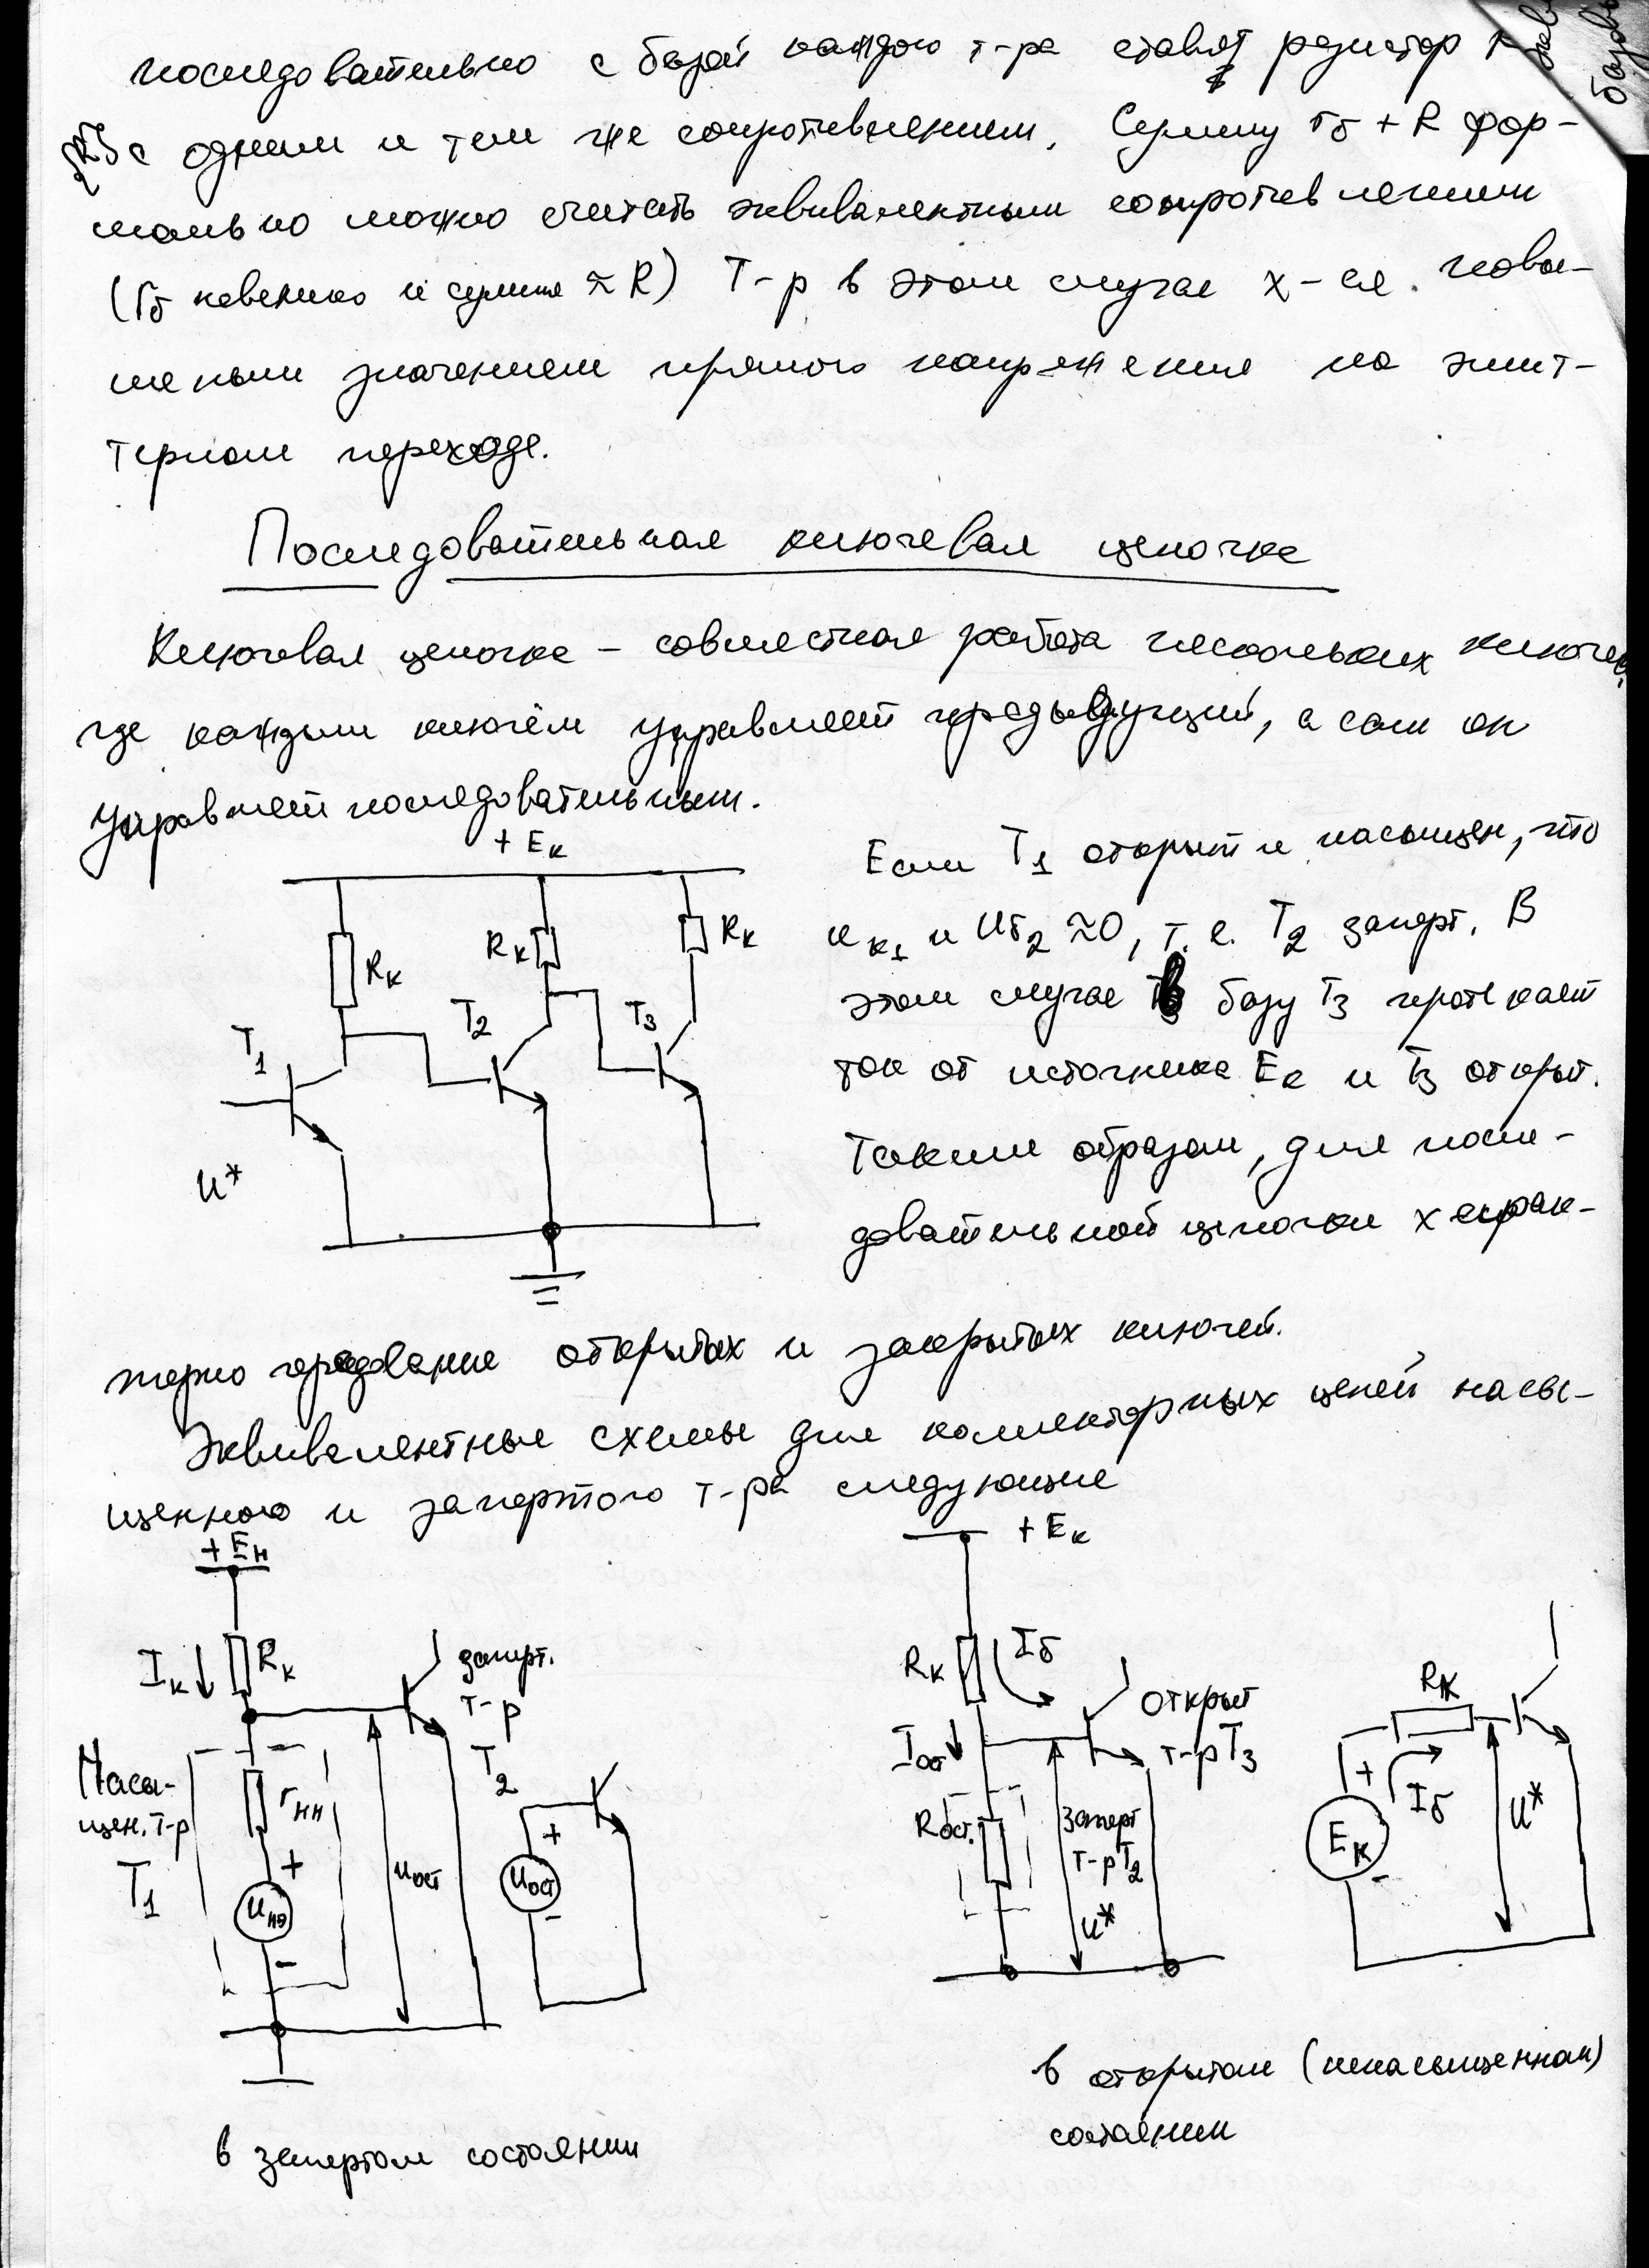 последовательно с базой каждого т-ра ставят резистор
с одним и тем же сопротивлением. Сумму rб + R фор-
мально можно считать эквивалентным сопротивлением
(rб невелико и сумма ≈ R) Т-р в этом случае х-ся повы-
шеным значением прямого напряжения на эмит-
терном переходе.
Последовательная ключевая цепочка
Ключевая цепочка – совместная работа нескольких ключей,
где каждым ключём управляет предыдущий, а сам он
управляет последовательным.
+ Eк
Rк
Rк
Rк
T1
T2
T3
U*
Если T1 открыт и насыщен, что
Uк1 и Uб2 ≈0, т.е. T2 заперт. В
этом случае в базу T3 протекает
ток от источника Eк и T3 открыт.
Таким образом, для после-
довательной цепочки харак-
терно чередование открытых и закрытых ключей.
Эквивалентные схемы для коллекторных цепей насы-
щенного и запертого т-ра следующие
+ Eн
Iк
Rк
заперт.
т-р
T2
Насы-
щен. т-р
T1
rнн
+
Uнэ
-
Uост
+
Uост
-
в запертом состоянии
+ Eк
Rк
Iб
Iост
открыт
т-р T3
Rост.
заперт
т-р T2
U*
Rк
+
Iб
Eк
-
U*
в открытом (ненасыщенном)
состоянии